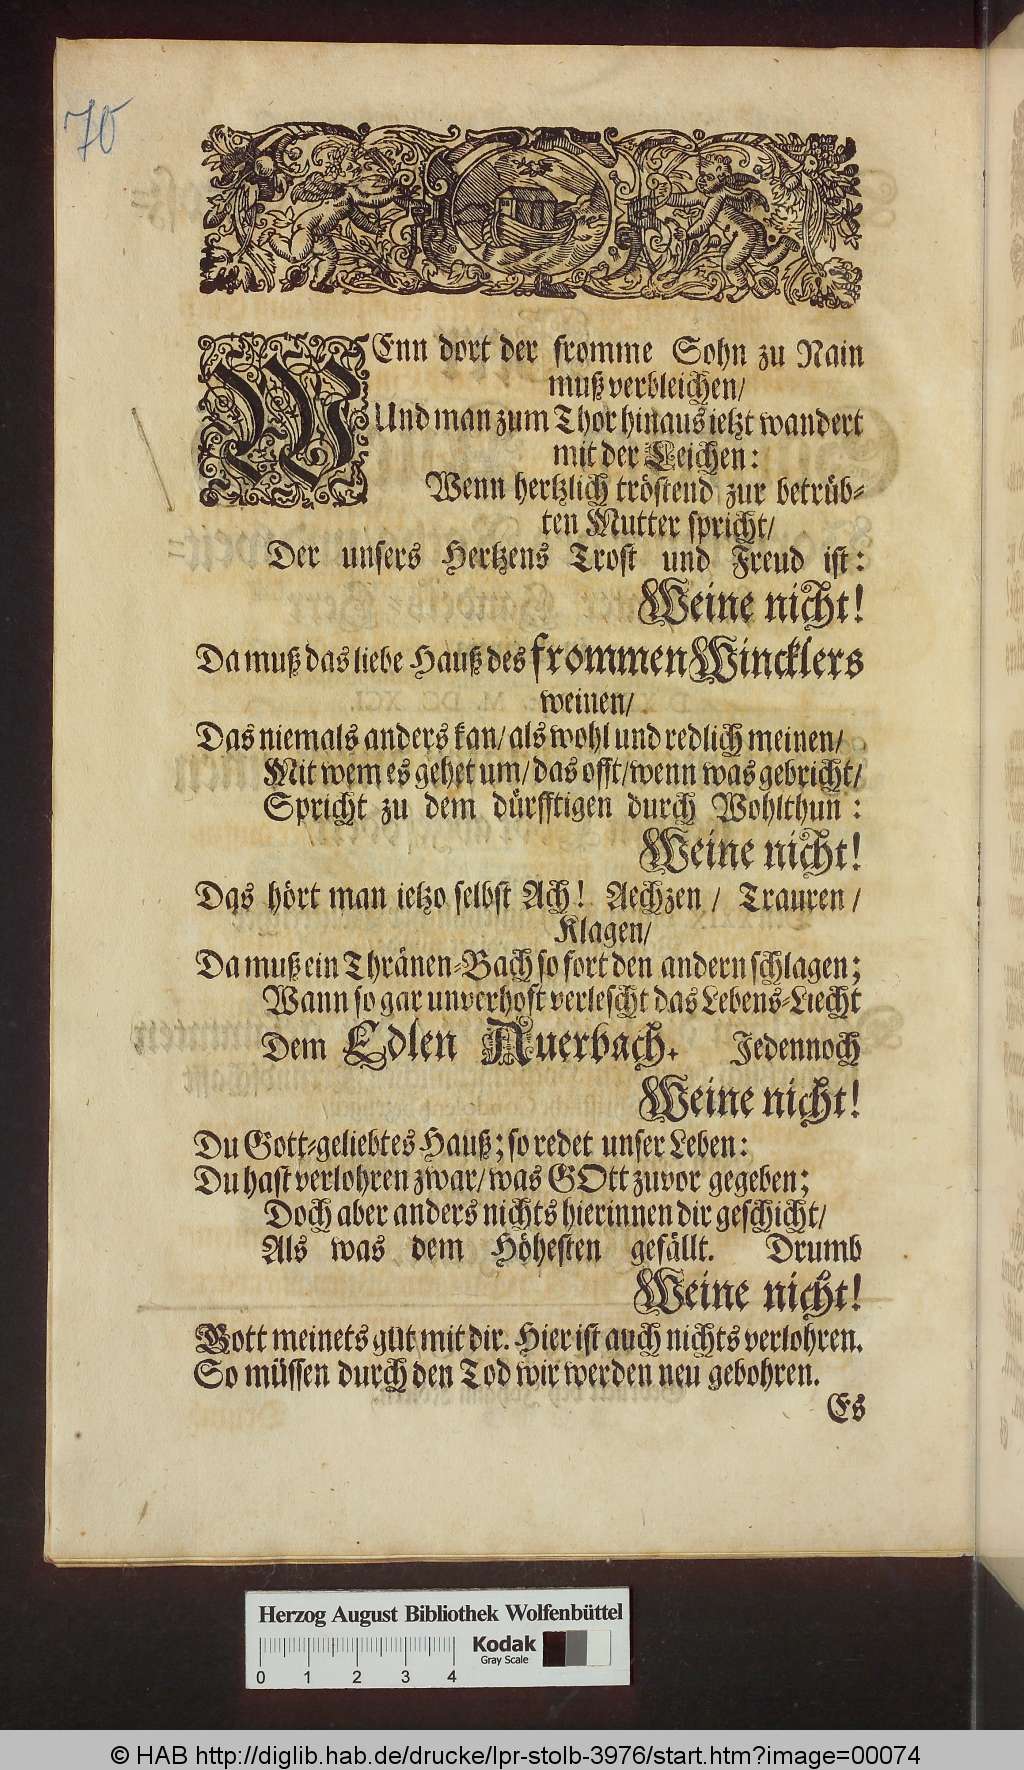 70
WEnn dort der fromme Sohn zu Nain
muß verbleichen/
Und man zum Thor hinaus ietzt wandert
mit der Leichen:
Wenn hertzlich tröstend zur betrüb-
ten Mutter spricht/
Der unsers Hertzens Trost und Freud ist:
Weine nicht!
Da muß das liebe Hauß des frommen Wincklers
weinen/
Das niemals anders kan/ als wohl und redlich meinen/
Mit wem es gehet um/ das offt/ wenn was gebricht/
Spricht zu dem dürfftigen durch Wohlthun:
Weine nicht!
Das hört man ietzo selbst Ach! Aechzen/ Trauren/
Klagen/
Da muß ein Thränen-Bach so fort den andern schlagen;
Wann so gar unverhoft verlescht das Lebens-Liecht
Dem Edlen Auerbach. Jedennoch
Weine nicht!
Du Gott-geliebtes Hauß; so redet unser Leben:
Du hast verlohren zwar/ was GOtt zuvor gegeben;
Doch aber anders nichts hierinnen dir geschicht/
Als was dem Höhesten gefällt. Drumb
Weine nicht!
Gott meinets gut mit dir. Hier ist auch nichts verlohren.
So müssen durch den Tod wir werden neu gebohren.
Es
Herzog August Bibliothek Wolfenbüttel
Kodak
Gray Scale
0 1 2 3 4
© HAB http://diglib.hab.de/drucke/lpr-stolb-3976/start.htm?image=00074